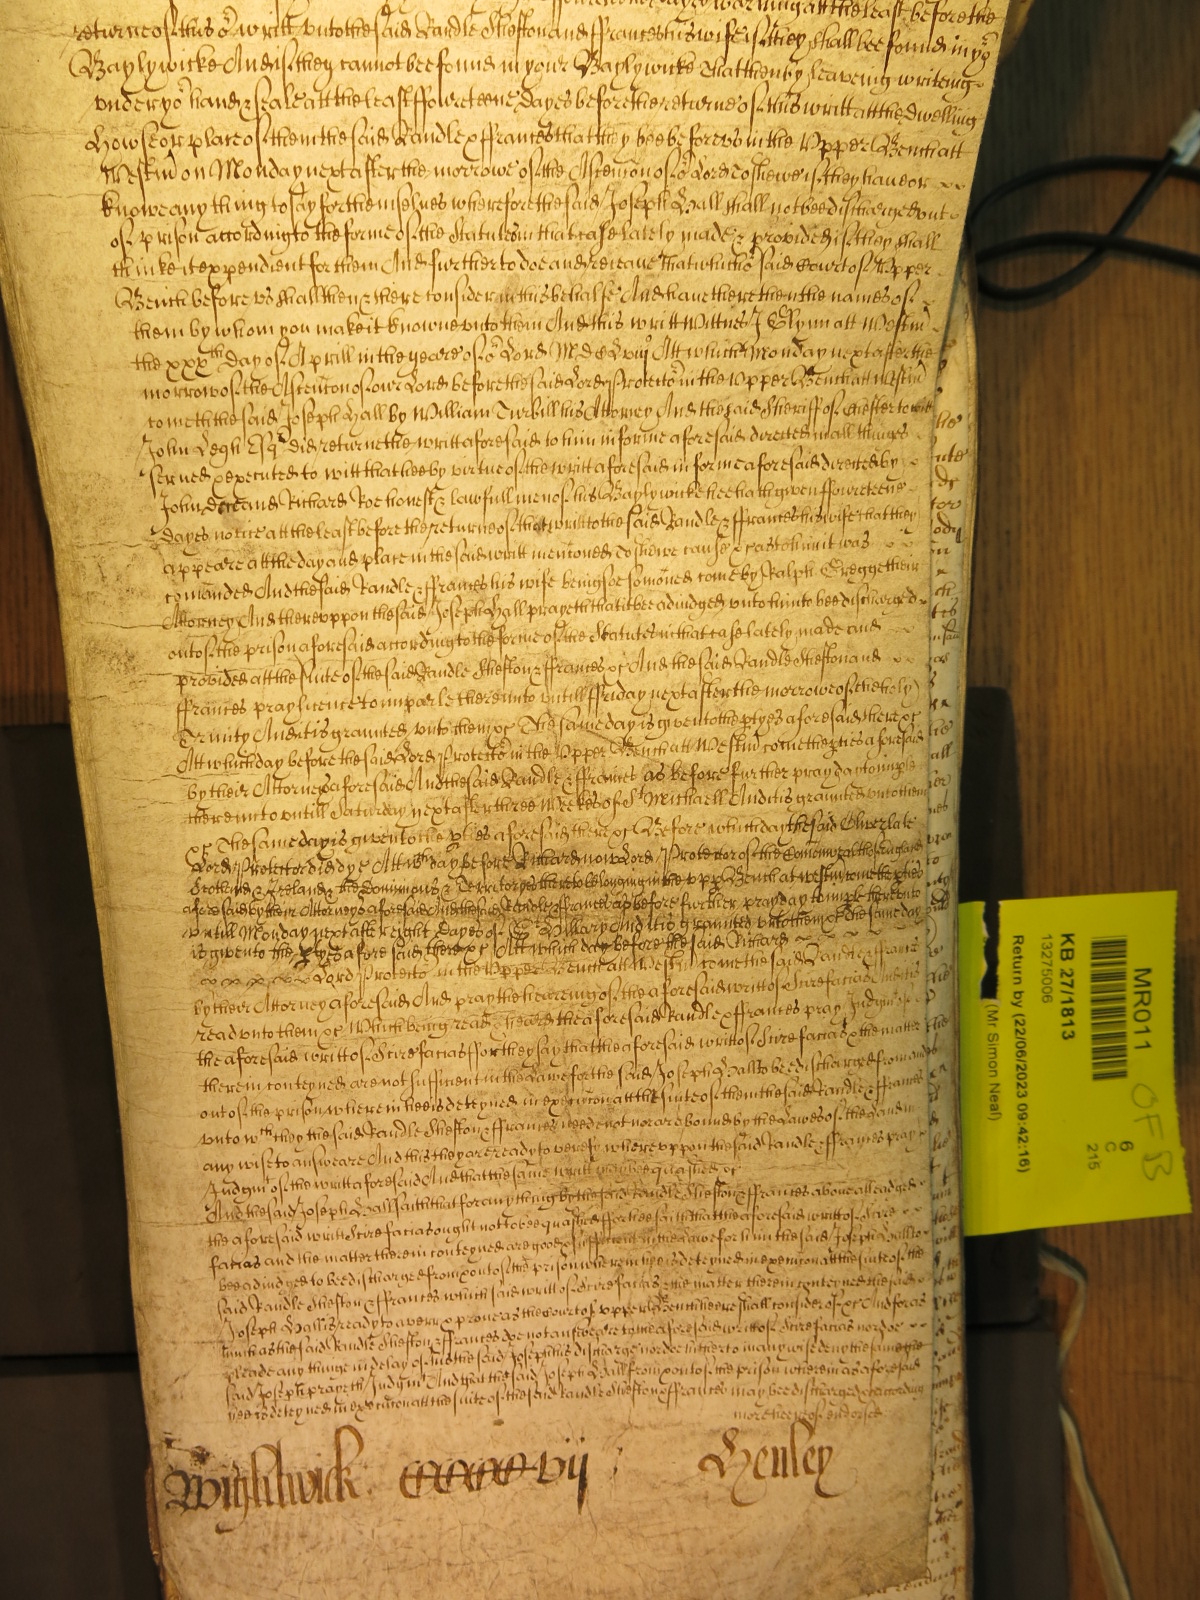 warning att the least before the
returne of this or writt unto the said Randle Shefton and ffrances his wife if they shall bee found in yor
Baylywicke And if they cannot bee found in your Baylywicke That then by leaveing writeing
under yor hand & seale att the least ffowreteene dayes before the returne of this writt att the dwelling
Howse or place of them the said Randle & ffrances that they bee before us in the Upper Bench att
Westm on Monday next after the morrowe of the Ascention of or Lord to shewe if they have or
knowe any thing to say for themselves wherefore the said Joseph Hall shall not bee discharged out
of prison according to the forme of the Statutes in that case lately made & provided if they shall
thinke it expendient for them And further to doe and receave that which or said Court of Upper
Bench before us shall then & there consider in this behalfe And have there then the names of
them by whom you make it knowne unto them And this writt Wittnes J Glynn att Westm
the xxxth day of Aprill in the yeare of or Lord MDCLviij Att which Monday next after the
morrow of the Ascention of our Lord before the said Lord Protector in the Upper Bench att Westm
cometh the said Joseph Hall by William Turbill his Attorney And the said Sheriff of Chester to witt
John Legh Esqr did returne the writt aforesaid to him in forme aforesaid directed in all things
served & executed to witt that hee by virtue of the writt aforesaid in forme aforesaid directed by
John Doe and Richard Roe honest & lawfull men of his Baylywicke hee hath given ffowreteene
dayes notice att the least before the returne of the writt to the said Randle & ffrances his wife that they
appeare att the day and place in the said writt mentioned to shewe cause &c as to him it was
comanded And the said Randle & ffrances his wife being soe somoned come by Ralph Gregge their
Attorney And thereuppon the said Joseph Hall prayeth that it bee adiudged unto him to bee discharged
out of the prison aforesaid according to the forme of the Statutes in that case lately made and
provided att the suite of the said Randle Shefton & ffrances &c And the said Randle Shefton and
ffrances pray licence to imparle thereunto untill ffriday next after the morrow of the holy
Trinity And it is graunted unto them &c The same day is given to the ptyes aforesaid there &c
Att which day before the said Lord Protector in the Upper Bench att Westm come the pties aforesaid
by their Attorneys aforesaid And the said Randle & ffrances as before further pray day to imple
thereunto untill Saturday next after three Weekes of St Michaell And it is graunted unto them
&c The same day is given to the pties aforesaid there &c Before which day the said Oliver late
Lord Protector did dye Att wch day before Richard now Lord Protector of the Comonwealth of England
Scotland & Ireland & the Dominions & Territoryes thereto belonging in the uppr Bench at westm come the pties
aforesaid by their Attorneys aforesaid And the said Randle & ffrances as before further pray day to imple thereunto
untill Monday next after eight dayes of St Hillary And it is graunted unto them &c The same day
is given to the ptyes aforesaid there &c Att which day before the said Richard
Lord Protector in the Upper Bench att Westm come the said Randle & ffrances
by their Attorney aforesaid And pray the heareing of the aforesaid writt of Scire facias and it is
read unto them &c Which being read & heard the aforesaid Randle & ffrances pray Judgmt of
the aforesaid writt of Scire facias ffor they say that the aforesaid writt of Scire facias & the matter
therein conteyned are not sufficient in the Lawe for the said Joseph Hall to bee discharged from and
out of the prison wherein hee is deteyned in execution att the suite of them the said Randle & ffrances
unto wch they the said Randle Shefton & ffrances need not nor are bound by the Lawes of the Land in
any wise to answeare And this they are ready to verefy whereuppon the said Randle & ffrances pray
Judgmt of the writt aforesaid And that the same writt may bee quashed &c
And the said Joseph Hall saith that for any thing by the said Randle Shefton & ffrances above alleadged
the aforesaid writt Scire facias ought not to bee quashed ffor hee saith that the aforesaid writt of Scire
facias and the matter therein conteyned are good & sufficient in the Lawe for him the said Joseph Hall to
bee adiudged to bee discharged from & out of the prison wherein hee is deteyned in execution att the suite of the
said Randle Shefton & ffrances which said writt of Scire facias & the matter therein conteyned the said
Joseph Hall is ready to averr & prove as the Court of upper Bench here shall consider of &c And for as
much as the said Randle Shefton & ffrances doe not answeare to the aforesaid writt of Scire facias nor doe
pleade any thinge in delay of him the said Joseph his discharge nor doe hitherto in any wise deny the same the
said Joseph prayeth Judgmt And that the said Joseph Hall from & out of the prison wherein as aforesaid
hee is deteyned in execution att the suite of the said Randle Shefton & ffrances may bee discharged &c according
more hereof endorsed
Wightwick: vij Henley
MR011
OF B
6
C
215
KB 27/1813
13275006
(Mr Simon Neal)
Return by (22/06/2023 09:42:16)